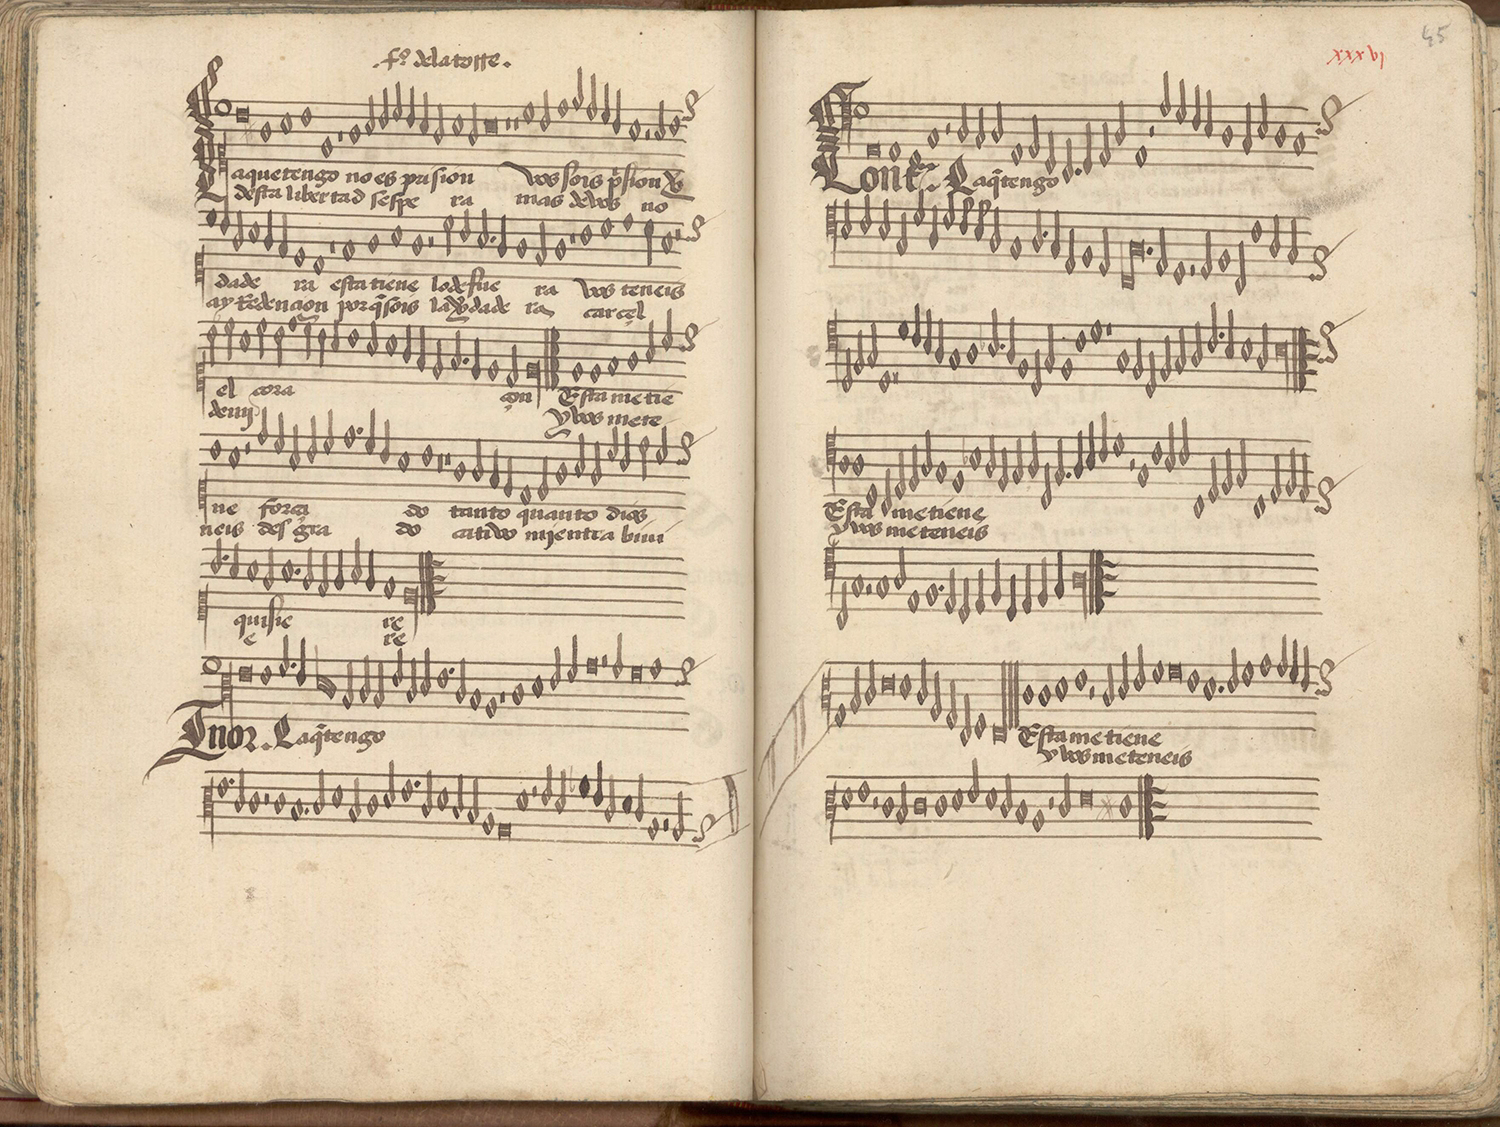 .fº. delatorre.
Laquetengo no es prision vos sois p̃sion
desta libertad sespe ra mas de vos no
dade ra esta tiene lo de fue ra vos teneis
ay Redencion porq̃ sois la dade ra carcel
el cora çon Esta me tie
y vos me te
ne força do tanto quanto dios
neis des gra do catiuo mientra biui
quisie re
e re
Tenor. Laq̃tengo
xxxvj
45
Contra. Laq̃tengo
Esta me tiene
y vos me teneis
Esta me tiene
y vos me teneis